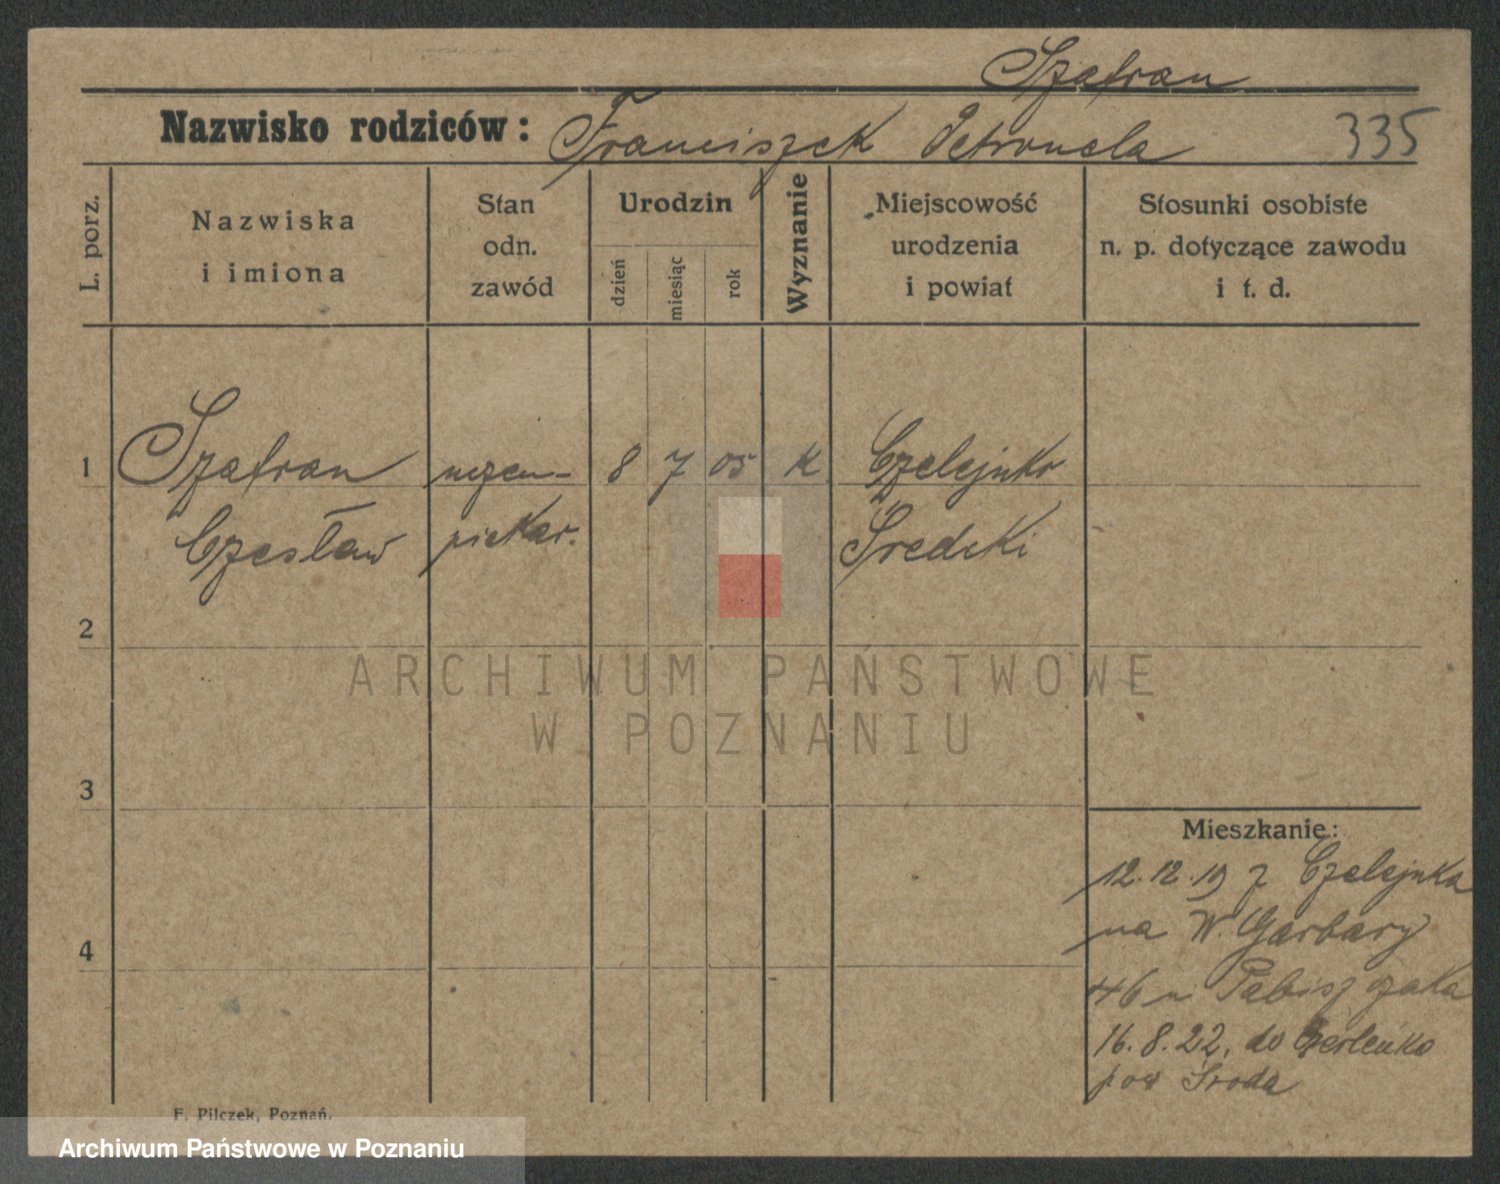 Szafran
Nazwisko rodziców: Franciszek Petronela 335
L. porz.
Nazwiska
i imiona
Stan
odn.
zawód
Urodzin
dzień
miesiąc
rok
Wyznanie
Miejscowość
urodzenia
i powiat
Stosunki osobiste
n. p. dotyczące zawodu
i t. d.
1 Szafran uczen- 8 7 05 K Czelejnko
Czesław piekar. Średzki
2
ARCHIWUM PAŃSTWOWE
W POZNANIU
3
Mieszkanie:
12.12.19 z Czelejnka
na W. Garbary
4
46 u Pabiszczaka
16.8.22. do Czerleńko
pow Środa
F. Pilczek, Poznań.
Archiwum Państwowe w Poznaniu